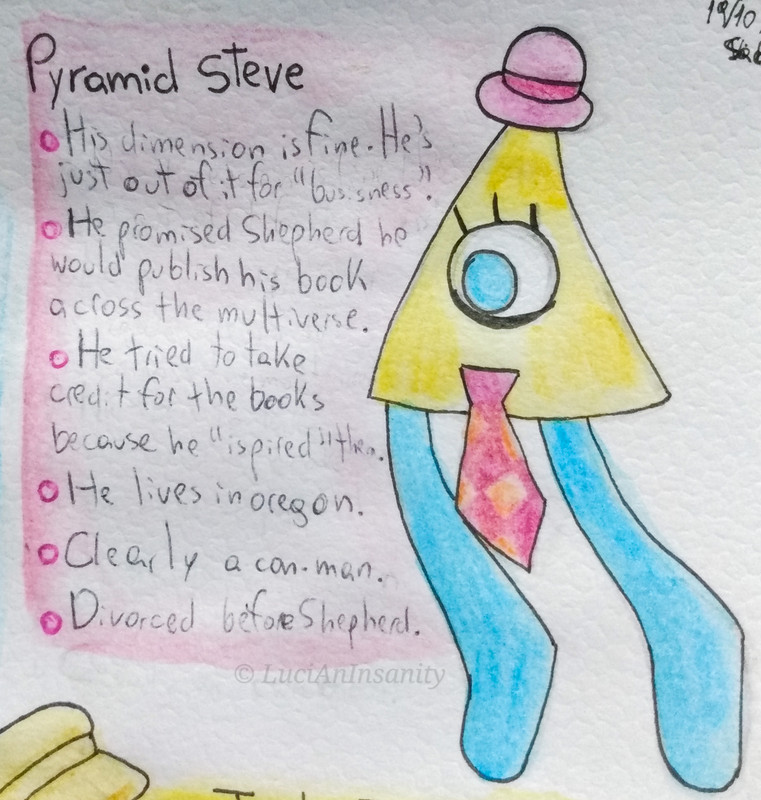 19/10
Pyramid Steve
His dimension is fine. He's
just out of it for "bussness".
He promised Shepherd he
would publish his book
across the multiverse.
He tried to take
credit for the books
because he "ispired" them.
He lives in oregon.
Clearly a con-man.
Divorced before Shepherd.
© LuciAnInsanity